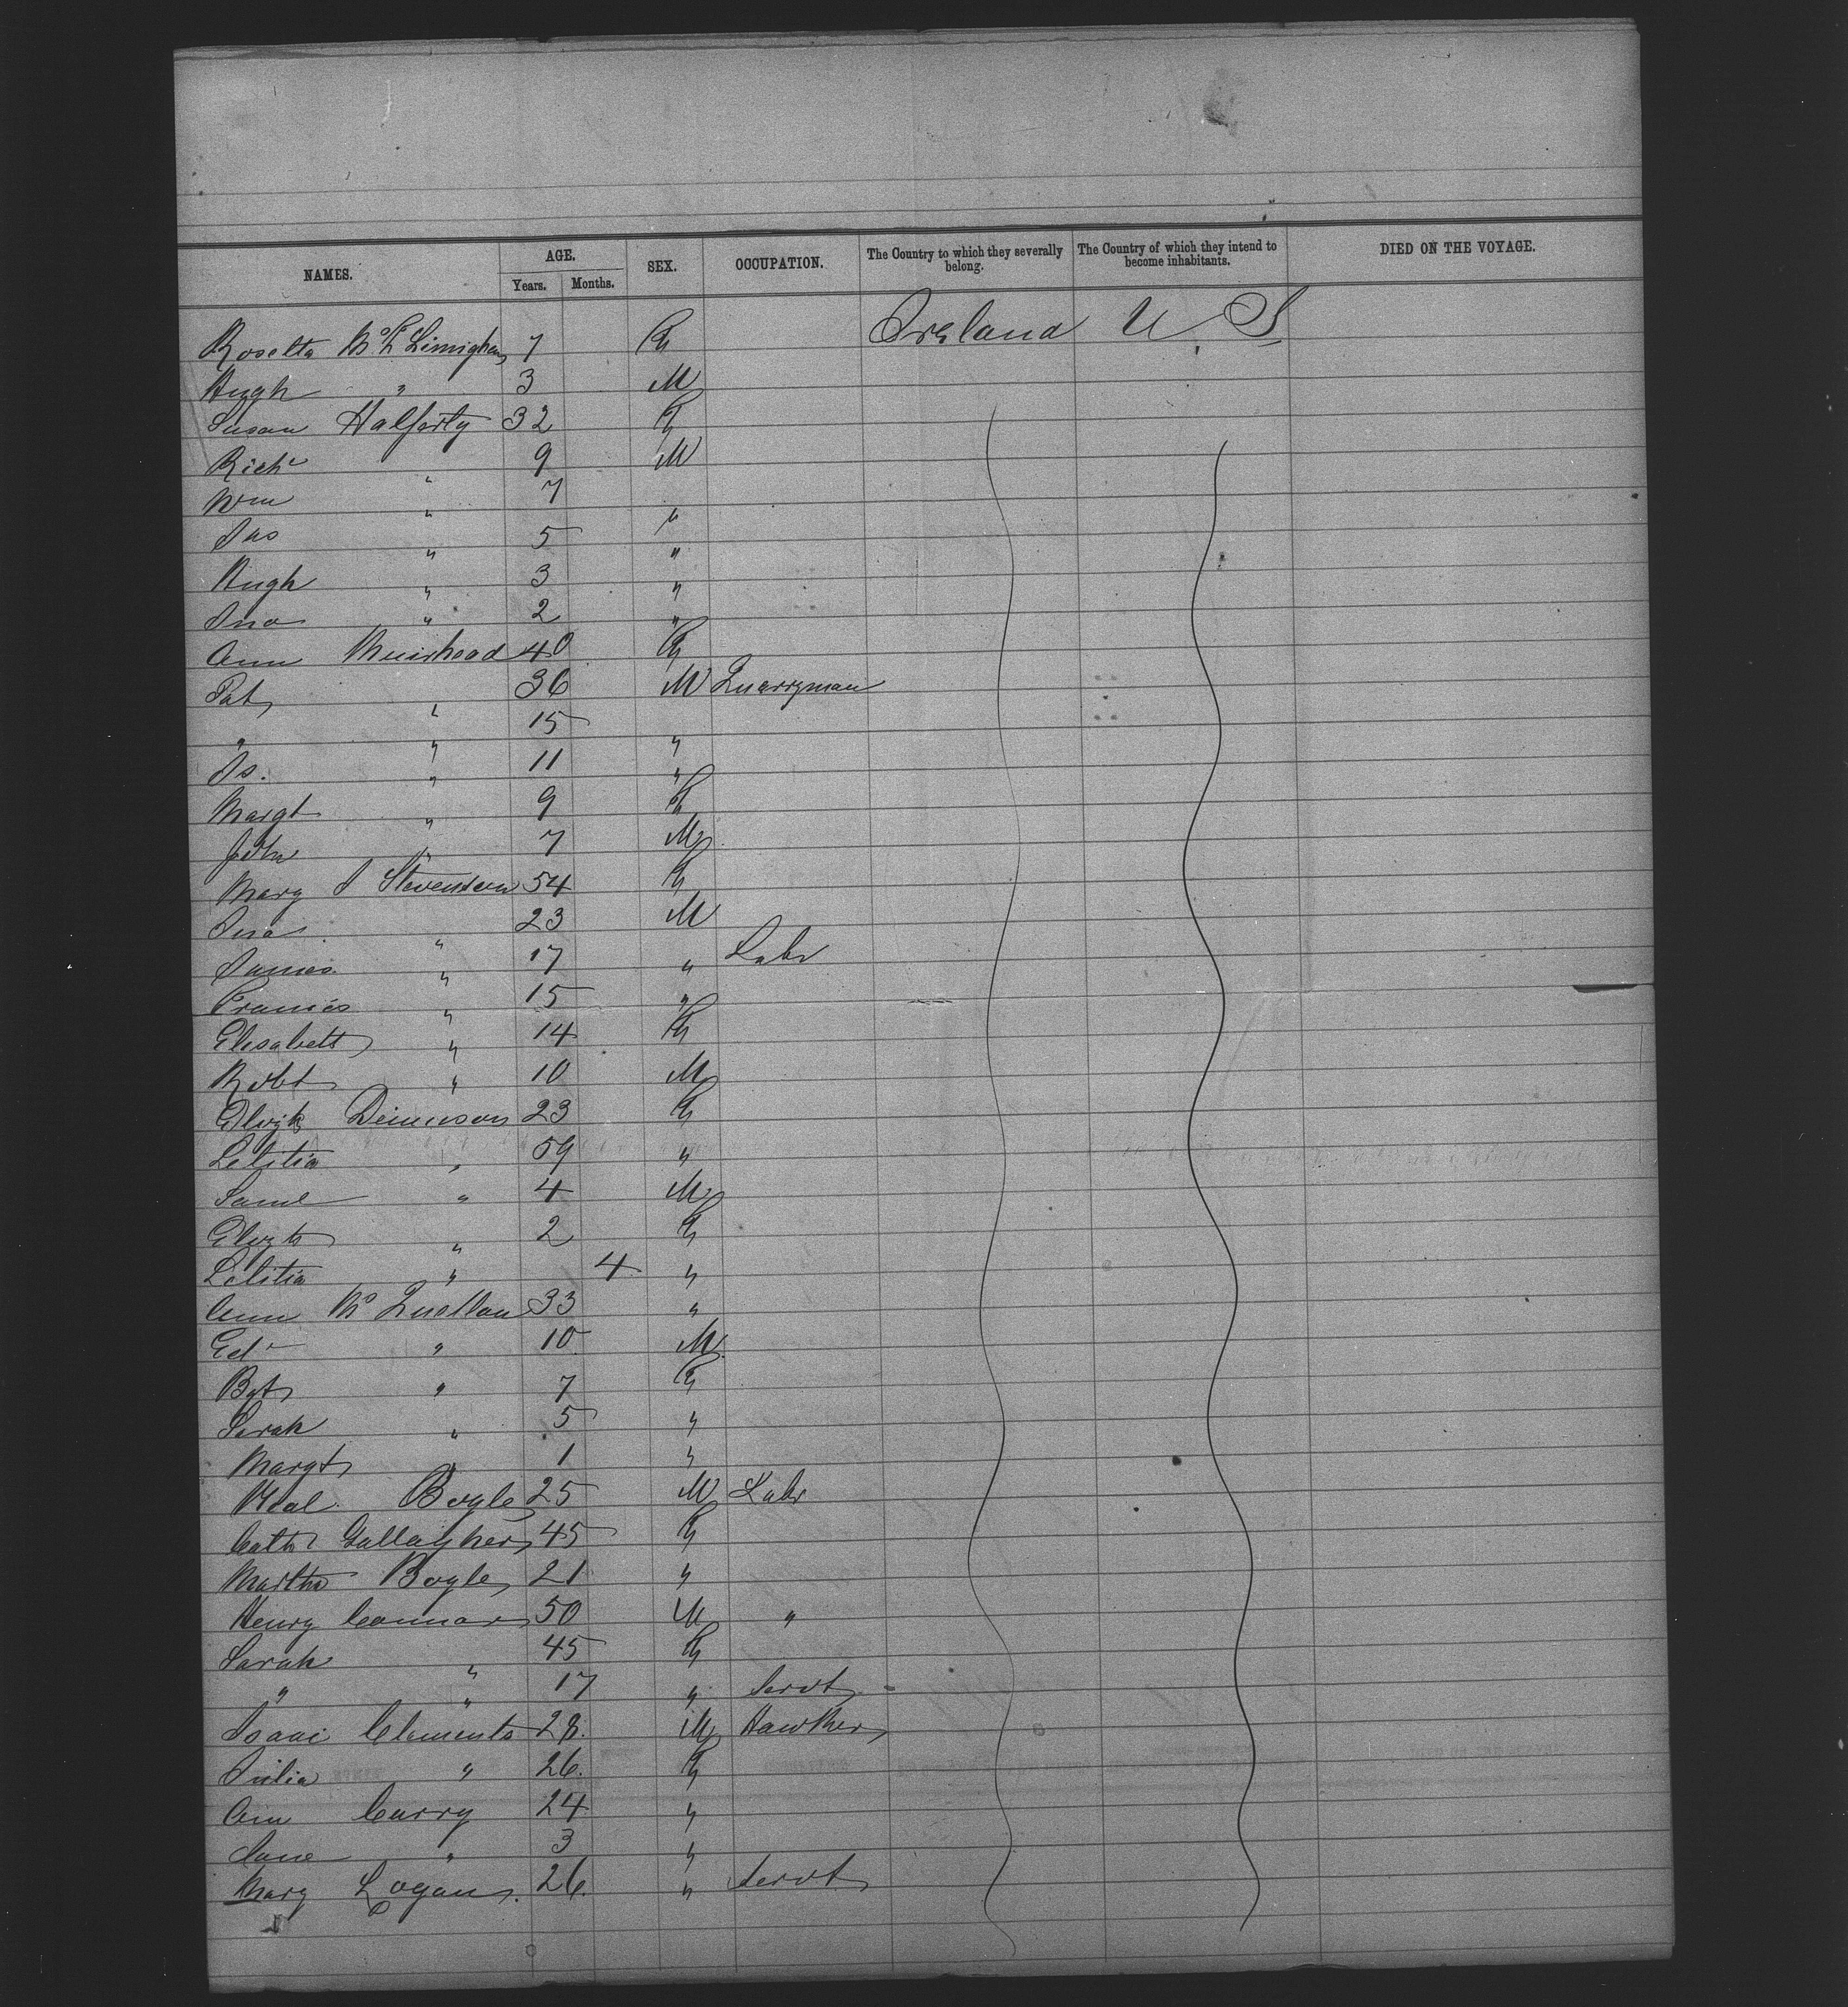 NAMES. AGE. Years. Months. SEX. OCCUPATION. The Country to which they severally belong. The Country of which they intend to become inhabitants. DIED ON THE VOYAGE.
Rosetta 7 F Ireland U S
Hugh " 3 M
Susan Halferty 32 F
Richd " 9 M
Wm " 7 "
Jas " 5 "
Hugh " 3 "
Jno " 2 "
Ann Muirhead 40 F
Pat " 36 M Quarryman
" " 15 "
Js. " 11 "
Margt " 9 F
John " 7 M
Mary J Stevenson 54 F
Jno " 23 M
James " 17 " Labr
Francis " 15 "
Elisabeth " 14 F
Robt " 10 M
Elizth Dennison 23 F
Letitia " 59 "
Saml " 4 M
Elizth " 2 F
Letitia " 4 "
Ann Mc Quillan 33 "
Edd " 10 M
Bgt " 7 F
Sarah " 5 "
Margt " 1 "
Neal Boyle 25 M Labr
Cathe Gallagher 45 F
Martha Boyle 21 "
Henry Connor 50 M "
Sarah " 45 F
" " 17 " Servt
Isaac Clements 28 M Hawker
Julia " 26 F
Ann Curry 24 "
Jane " 3 "
Mary Logan 26 " Servt